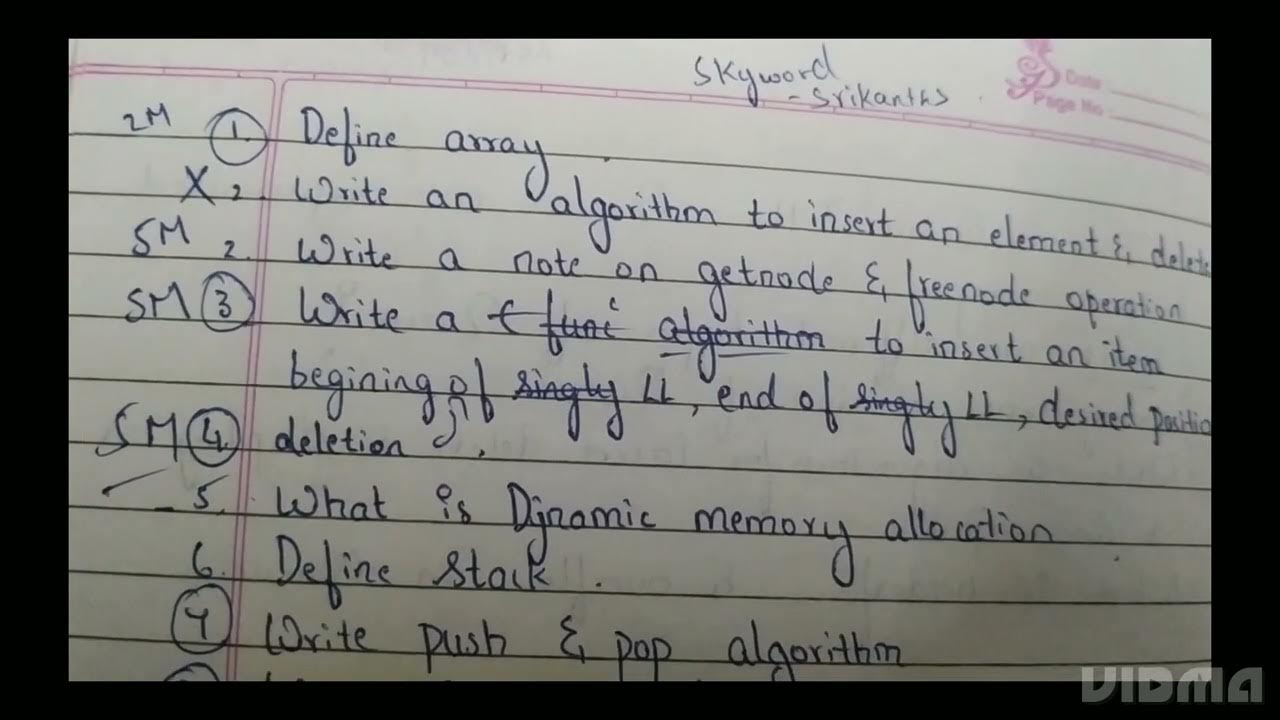 Skyword
- Srikanths
Date
Page No
2M 1. Define array.
X 2. Write an algorithm to insert an element & delete
5M 2. Write a note on getnode & freenode operation
5M 3 Write a C func algorithm to insert an item
begining of singly LL, end of singly LL, desired positio
5M 4 deletion.
5. What is Dynamic memory allocation
6. Define stack.
7 Write push & pop algorithm
VIDMA